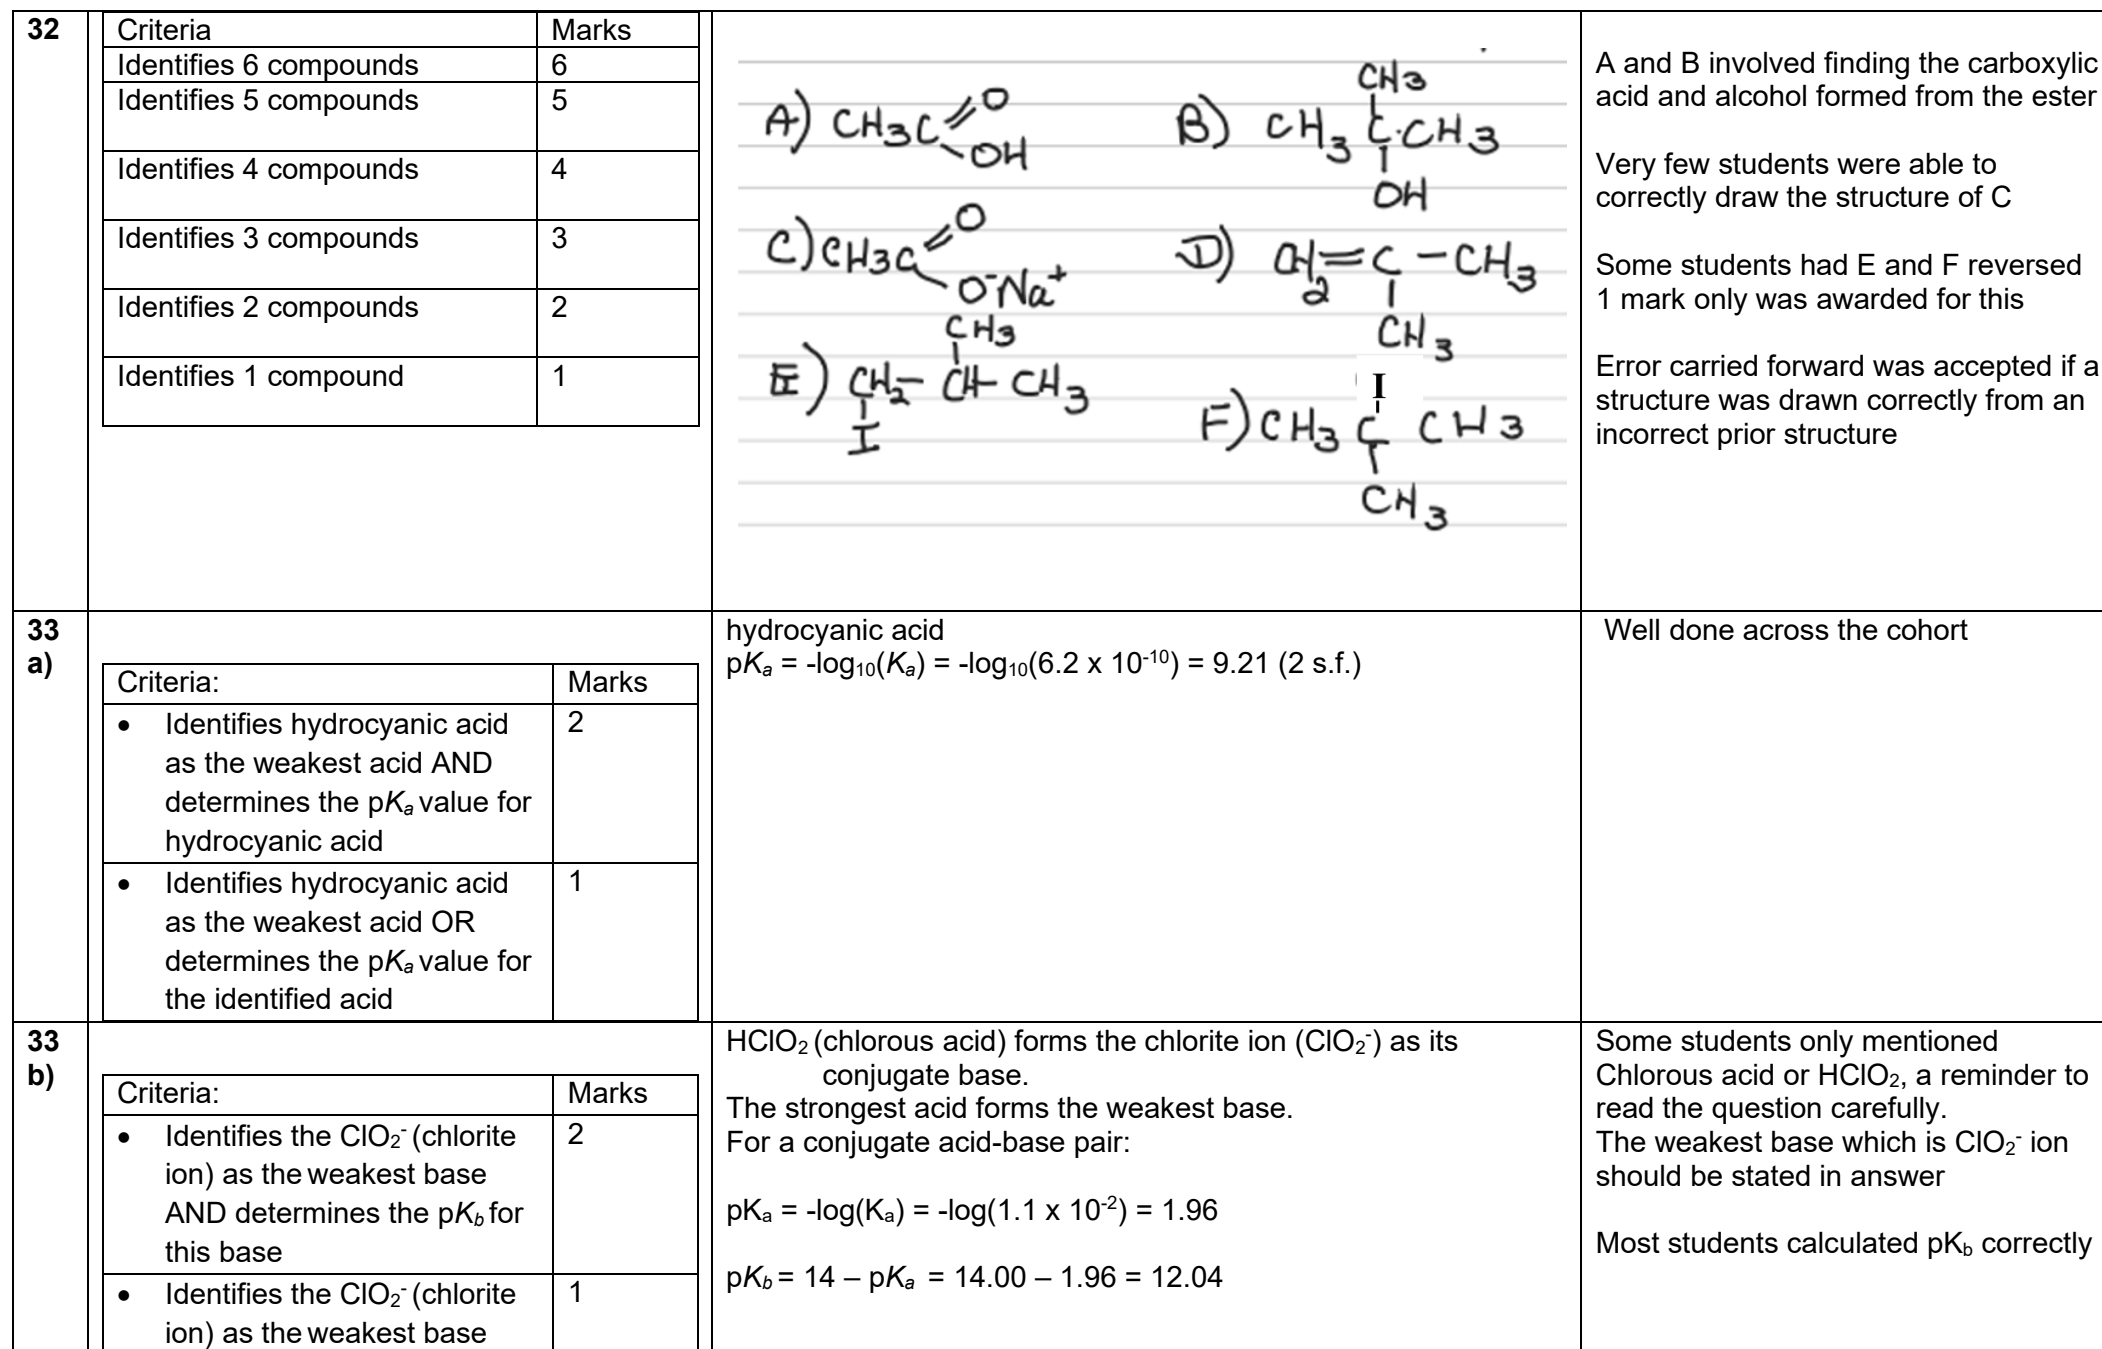 32
Criteria Marks
Identifies 6 compounds 6
Identifies 5 compounds 5
Identifies 4 compounds 4
Identifies 3 compounds 3
Identifies 2 compounds 2
Identifies 1 compound 1
A) CH3C=O
-OH
B) CH3
CH3 C-CH3
OH
C) CH3C=O
O⁻Na⁺
D) CH2=C-CH3
CH3
E) CH3
CH2-CH-CH3
I
F) I
CH3 C CH3
CH3
A and B involved finding the carboxylic
acid and alcohol formed from the ester
Very few students were able to
correctly draw the structure of C
Some students had E and F reversed
1 mark only was awarded for this
Error carried forward was accepted if a
structure was drawn correctly from an
incorrect prior structure
33
a)
Criteria: Marks
• Identifies hydrocyanic acid 2
as the weakest acid AND
determines the pKₐ value for
hydrocyanic acid
• Identifies hydrocyanic acid 1
as the weakest acid OR
determines the pKₐ value for
the identified acid
hydrocyanic acid
pKₐ = -log₁₀(Kₐ) = -log₁₀(6.2 x 10⁻¹⁰) = 9.21 (2 s.f.)
Well done across the cohort
33
b)
Criteria: Marks
• Identifies the ClO₂⁻ (chlorite 2
ion) as the weakest base
AND determines the pK_b for
this base
• Identifies the ClO₂⁻ (chlorite 1
ion) as the weakest base
HClO₂ (chlorous acid) forms the chlorite ion (ClO₂⁻) as its
conjugate base.
The strongest acid forms the weakest base.
For a conjugate acid-base pair:
pKₐ = -log(Kₐ) = -log(1.1 x 10⁻²) = 1.96
pK_b = 14 – pKₐ = 14.00 – 1.96 = 12.04
Some students only mentioned
Chlorous acid or HClO₂, a reminder to
read the question carefully.
The weakest base which is ClO₂⁻ ion
should be stated in answer
Most students calculated pK_b correctly